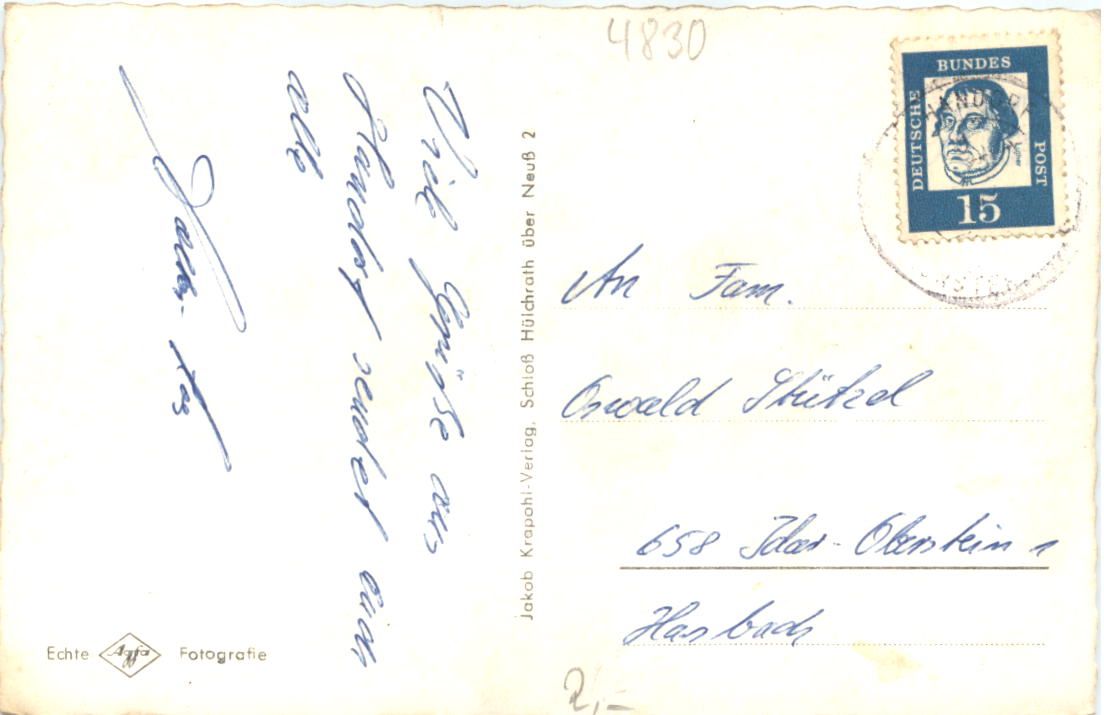 4830
DEUTSCHE
BUNDES
POST
15
HANDORF
Viele Grüße aus
Handorf sendet euch
alle
Jakob Krapohl-Verlag, Schloß Hülchrath über Neuß 2
An Fam.
Oswald Stützel
658 Idar-Oberstein 1
Hasbach
Echte Agfa Fotografie
2,-